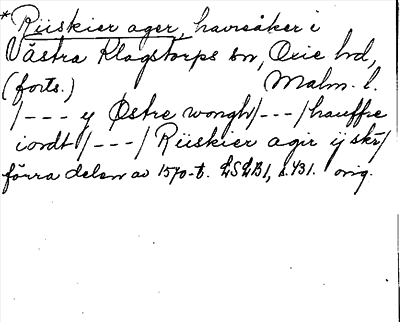 *Riiskier ager, havreåker i
Västra Klagstorps sn, Oxie hd,
(forts.) Malm. l.
/--- y Østre wongh/---/hauffre
iordt/---/Riiskier agir ij skr/
förra delen av 1570-t. LSLB1, s. 431. orig.